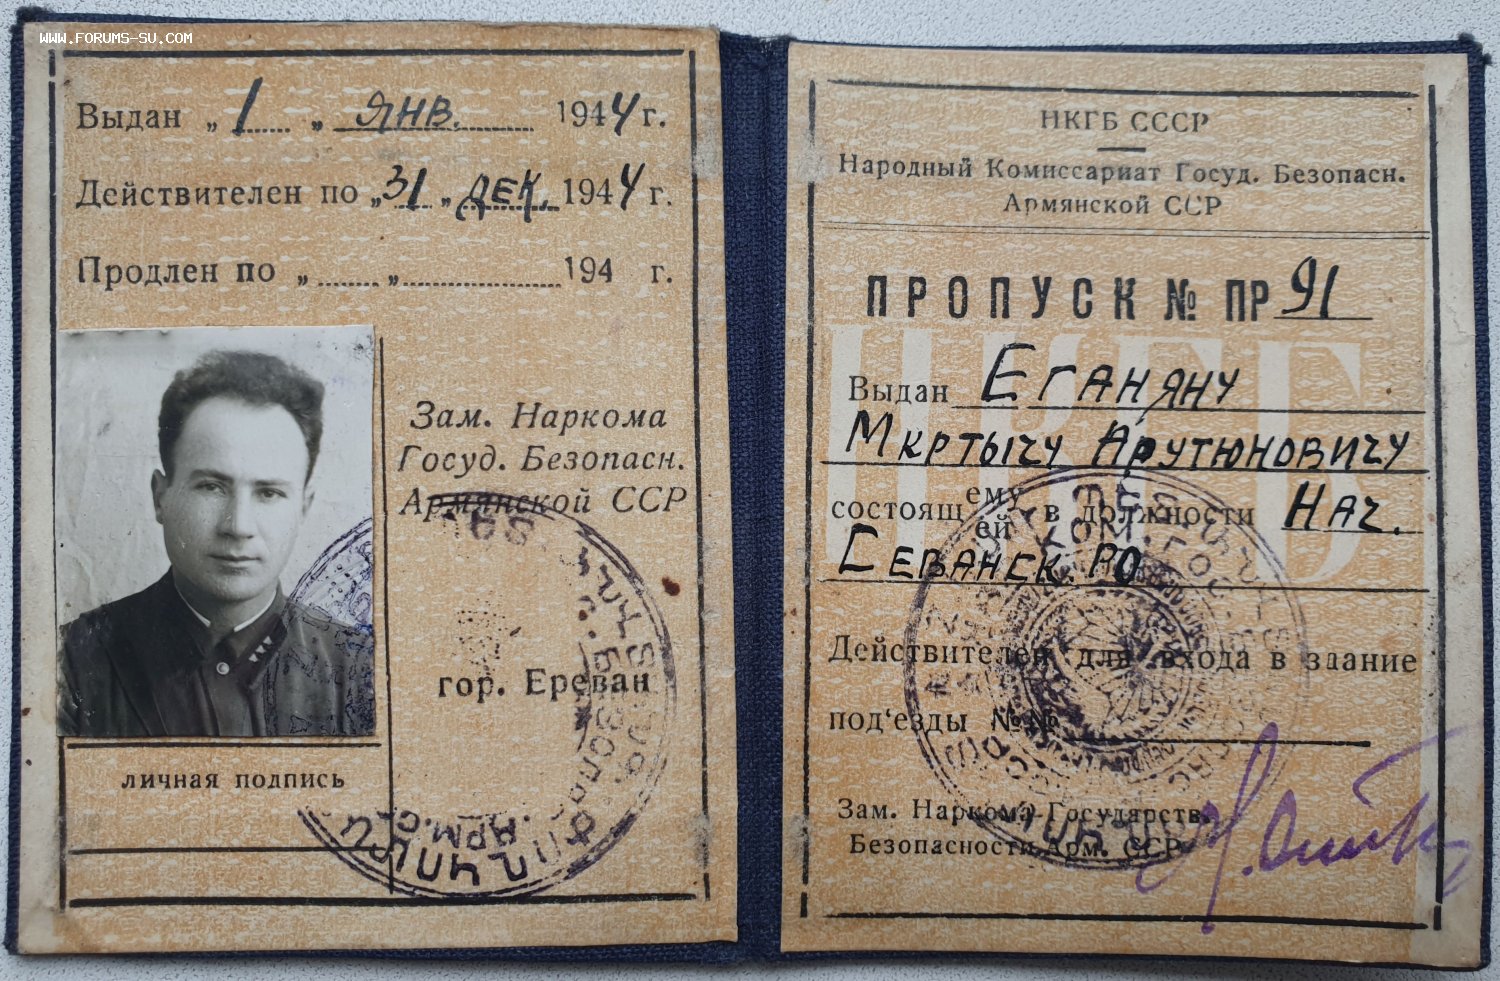 WWW.FORUMS-SU.COM
Выдан „1„ ЯНВ. 1944 г.
Действителен по „31„ ДЕК. 1944 г.
Продлен по „ „ 194 г.
Зам. Наркома
Госуд. Безопасн.
Армянской ССР
гор. Ереван
личная подпись
НКГБ СССР
Народный Комиссариат Госуд. Безопасн.
Армянской ССР
ПРОПУСК № ПР 91
НКГБ
Выдан ЕГАНЯНУ
МКРТЫЧУ АРУТЮНОВИЧУ
состоящ ему ей в должности НАЧ.
СЕВАНСК. РО
Действителен для входа в здание
под‘езды №№
Зам. Наркома Государств.
Безопасности Арм. ССР